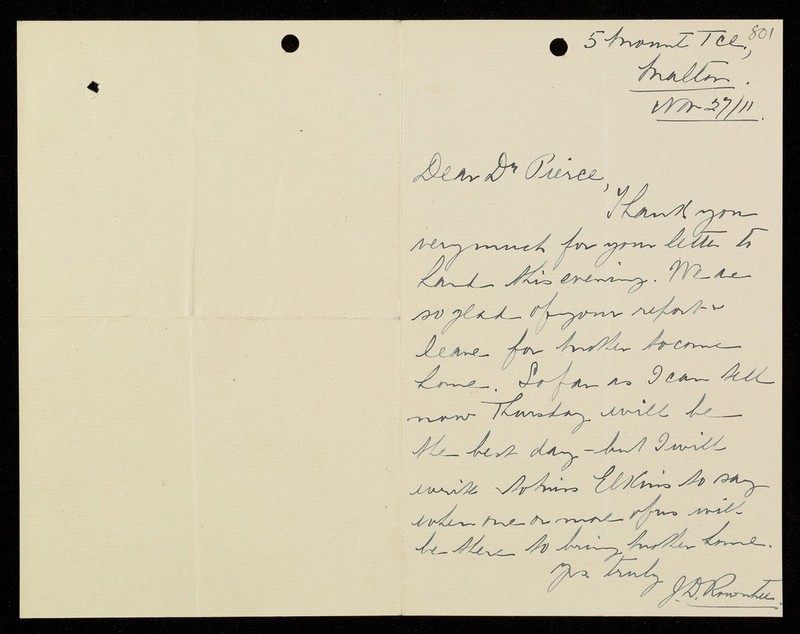 801
5 Mount Tce,
Malton.
Nov 27/11.
Dear Dr Pierce,
Thank you
very much for your letter to
hand this evening. We are
so glad of your report &
leave for Mother to come
home. So far as I can tell
now Thursday will be
the best day – but I will
write to Miss Elkins to say
when one or more of us will
be there to bring Mother home.
Yrs truly
J.D. Rowntree.